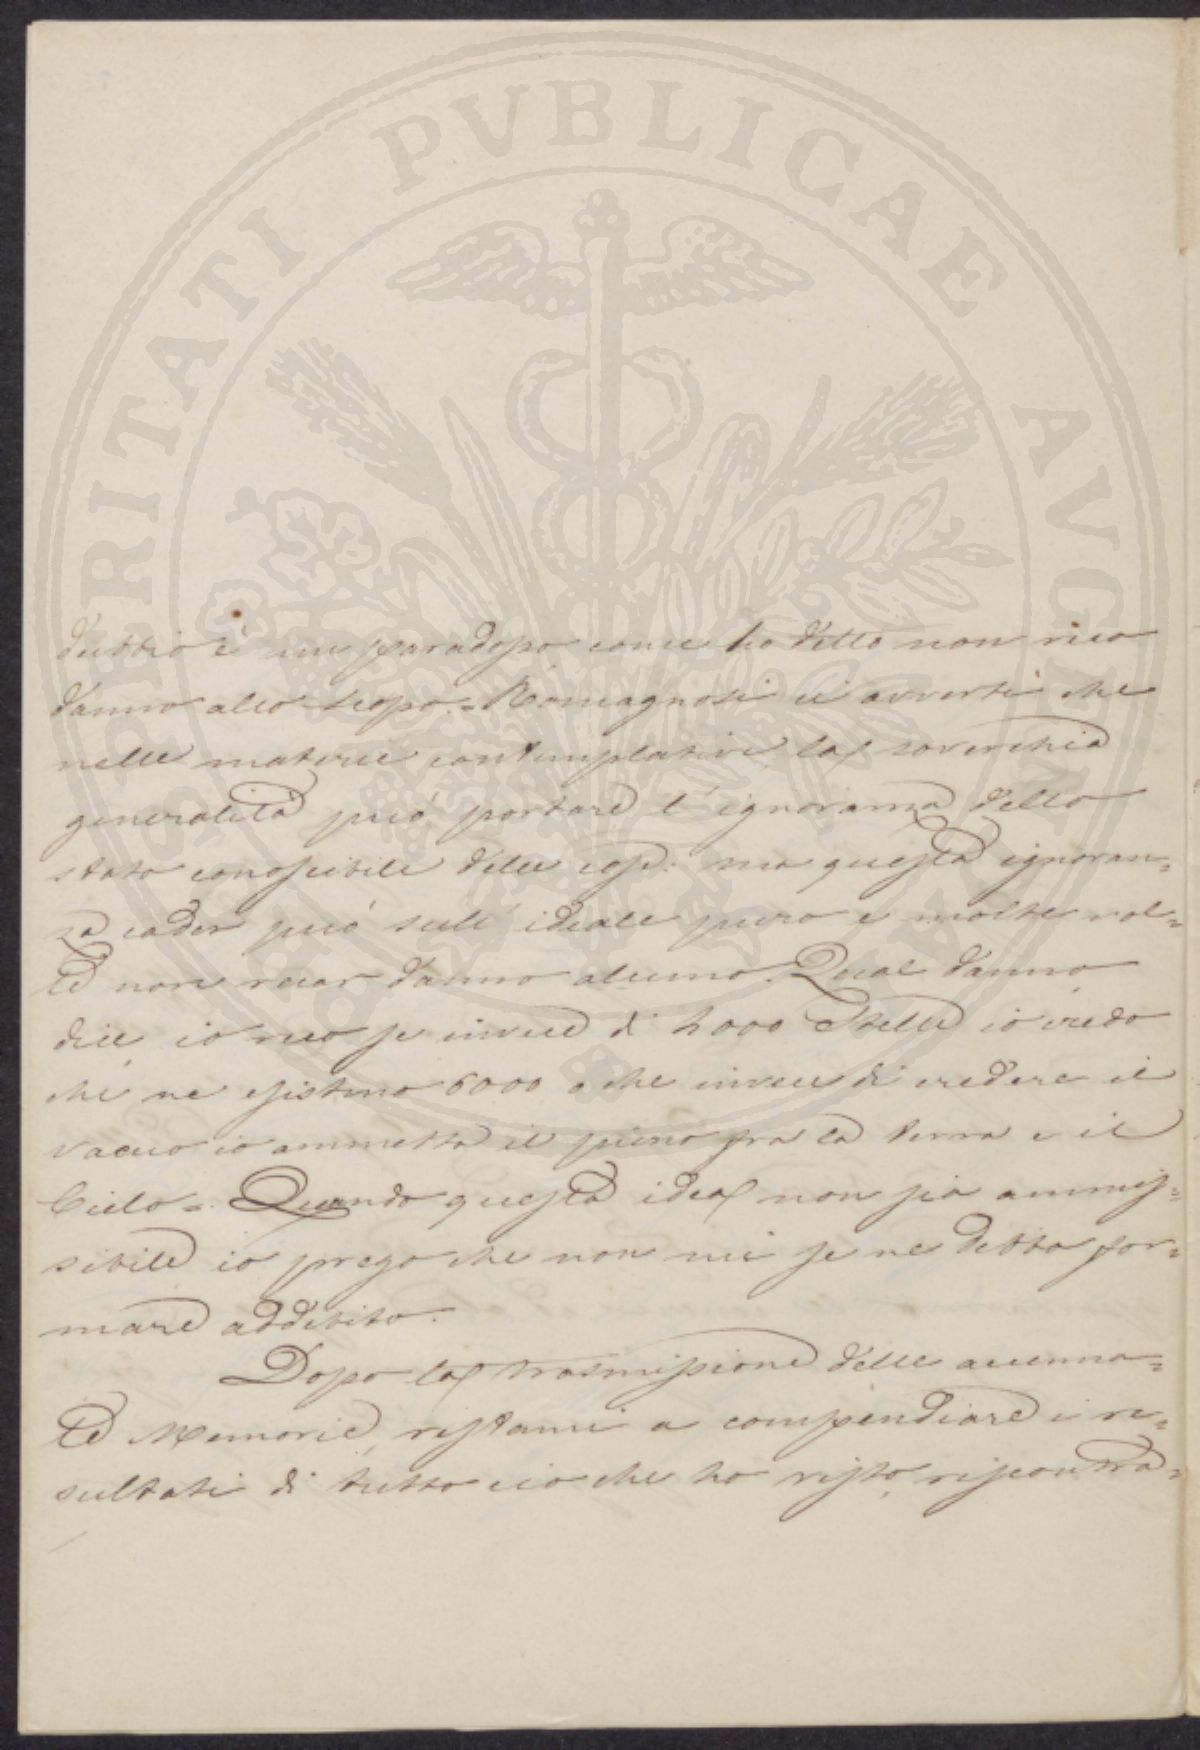 PROSPERITATI PVBLICAE AVGENDAE
dubbio è un paradosso come ho detto non reco
danno allo scopo. = Romagnosi ci avvertì che
nelle materie contemplative la soverchia
generalità può portare l'ignoranza dello
stato conoscibile delle cose: ma questa ignoran=
za cader può sull'ideale puro e molte vol=
te non recar danno alcuno. Qual danno
dice, io reco se invece di 2000 Stelle io credo
che ne esistono 6000 o che invece di credere il
vacuo io ammetta il pieno fra la terra e il
Cielo =. Quando questa idea non sia ammis=
sibile io prego che non mi se ne debba for=
mare addebito.
Dopo la trasmissione delle accenna=
te Memorie, restami a compendiare i re=
sultati di tutto ciò che ho visto, riscontra=